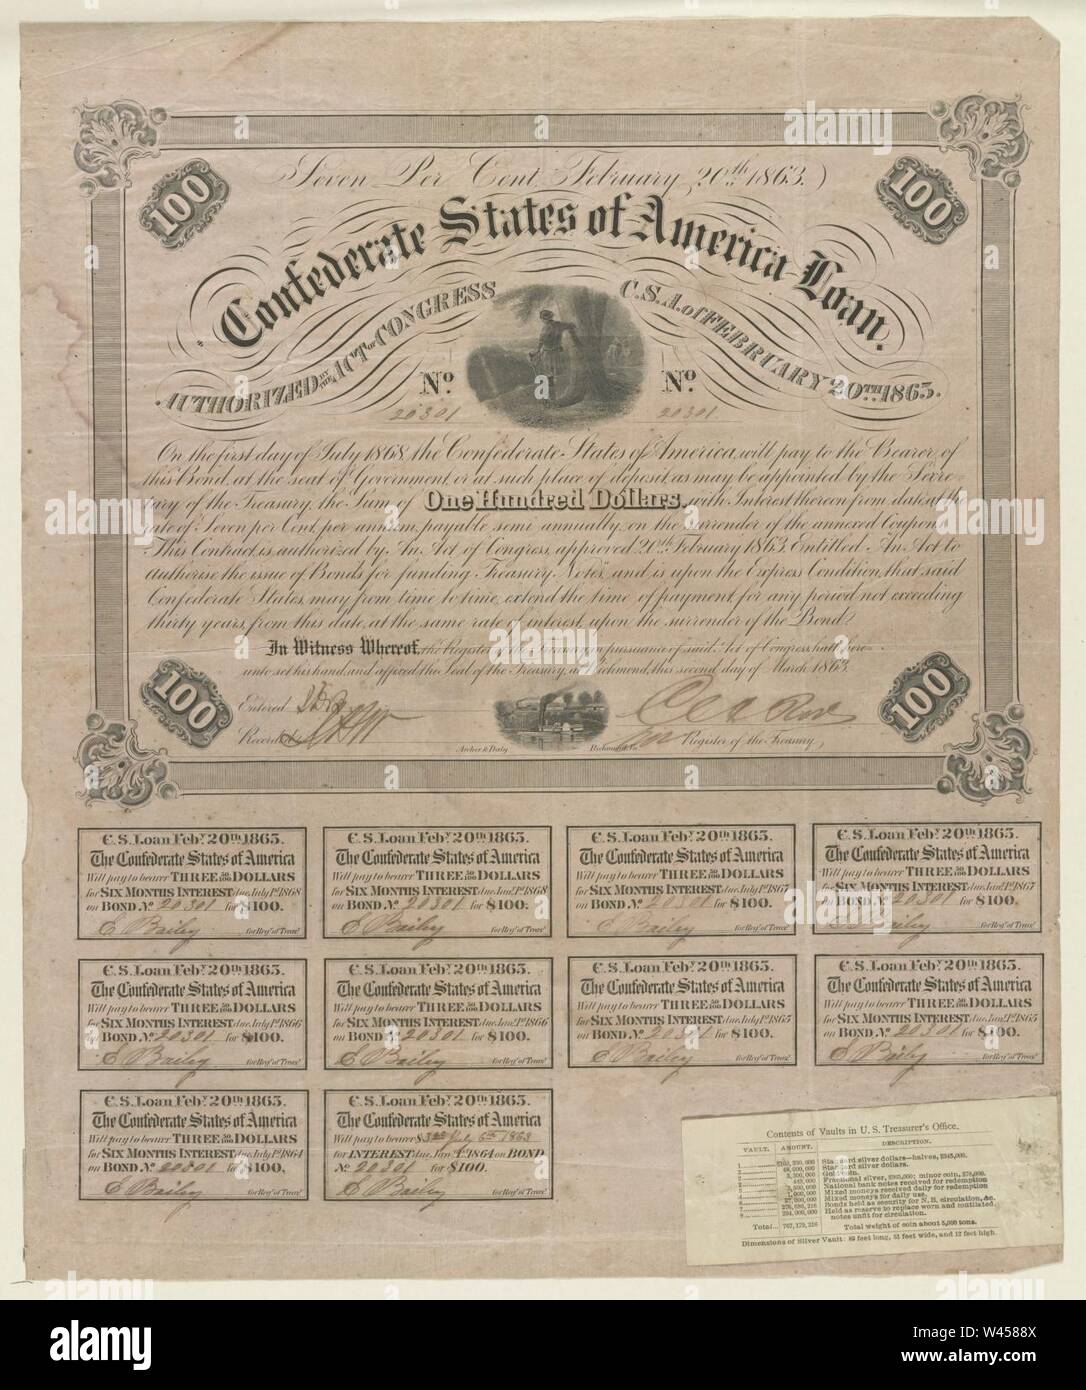 100
100
Seven Per Cent, February 20th 1863.
Confederate States of America Loan.
AUTHORIZED BY THE ACT OF CONGRESS C.S.A. of FEBRUARY 20TH 1863.
No. No.
20301 20301
On the first day of July 1868, the Confederate States of America, will pay to the Bearer of
this Bond, at the seat of Government, or at such place of deposit, as may be appointed by the Secre-
tary of the Treasury, the Sum of One Hundred Dollars, with Interest thereon from date at the
rate of Seven per Cent. per annum, payable semi-annually, on the surrender of the annexed Coupons.
This Contract, is authorized by An Act of Congress, approved 20th February 1863, Entitled "An Act to
authorise the issue of Bonds for funding Treasury Notes", and is upon the Express Condition, that said
Confederate States, may from time to time, extend the time of payment, for any period not exceeding
thirty years, from this date, at the same rate of interest, upon the surrender of the Bond.
In Witness Whereof, the Register of the Treasury, in pursuance of said Act of Congress, hath here-
unto set his hand, and affixed the Seal of the Treasury, at Richmond, this second day of March 1863.
100
100
Entered
Recorded
Archer & Daly Richmond, Va. Register of the Treasury,
C.S. Loan Feby. 20TH 1863.
The Confederate States of America
Will pay to bearer THREE 50/100 DOLLARS
for SIX MONTHS INTEREST due July 1st 1868
on BOND No. 20301 for $100.
E Bailey for Regr. of Treasy.
C.S. Loan Feby. 20TH 1863.
The Confederate States of America
Will pay to bearer THREE 50/100 DOLLARS
for SIX MONTHS INTEREST due Jany. 1st 1868
on BOND No. 20301 for $100.
E Bailey for Regr. of Treasy.
C.S. Loan Feby. 20TH 1863.
The Confederate States of America
Will pay to bearer THREE 50/100 DOLLARS
for SIX MONTHS INTEREST due July 1st 1867
on BOND No. 20301 for $100.
E Bailey for Regr. of Treasy.
C.S. Loan Feby. 20TH 1863.
The Confederate States of America
Will pay to bearer THREE 50/100 DOLLARS
for SIX MONTHS INTEREST due Jany. 1st 1867
on BOND No. 20301 for $100.
E Bailey for Regr. of Treasy.
C.S. Loan Feby. 20TH 1863.
The Confederate States of America
Will pay to bearer THREE 50/100 DOLLARS
for SIX MONTHS INTEREST due July 1st 1866
on BOND No. 20301 for $100.
E Bailey for Regr. of Treasy.
C.S. Loan Feby. 20TH 1863.
The Confederate States of America
Will pay to bearer THREE 50/100 DOLLARS
for SIX MONTHS INTEREST due Jany. 1st 1866
on BOND No. 20301 for $100.
E Bailey for Regr. of Treasy.
C.S. Loan Feby. 20TH 1863.
The Confederate States of America
Will pay to bearer THREE 50/100 DOLLARS
for SIX MONTHS INTEREST due July 1st 1865
on BOND No. 20301 for $100.
E Bailey for Regr. of Treasy.
C.S. Loan Feby. 20TH 1863.
The Confederate States of America
Will pay to bearer THREE 50/100 DOLLARS
for SIX MONTHS INTEREST due Jany. 1st 1865
on BOND No. 20301 for $100.
E Bailey for Regr. of Treasy.
C.S. Loan Feby. 20TH 1863.
The Confederate States of America
Will pay to bearer THREE 50/100 DOLLARS
for SIX MONTHS INTEREST due July 1st 1864
on BOND No. 20301 for $100.
E Bailey for Regr. of Treasy.
C.S. Loan Feby. 20TH 1863.
The Confederate States of America
Will pay to bearer $ July 6th 1863
for INTEREST due Jany. 1st 1864 on BOND
No. 20301 for $100.
E Bailey for Regr. of Treasy.
Contents of Vaults in U. S. Treasurer's Office.
VAULT. AMOUNT. DESCRIPTION.
Standard silver dollars—halves,
Standard silver dollars.
Gold coin.
Fractional silver, minor coin,
National bank notes received for redemption
Mixed moneys received daily for redemption
Mixed moneys for daily use.
Bonds held as security for N. B. circulation, &c.
Held as reserve to replace worn and mutilated
notes unfit for circulation.
Total... 767,173,216 Total weight of coin about 5,000 tons.
Dimensions of Silver Vault: 89 feet long, 51 feet wide, and 12 feet high.
alamy
Image ID: W4588X
www.alamy.com